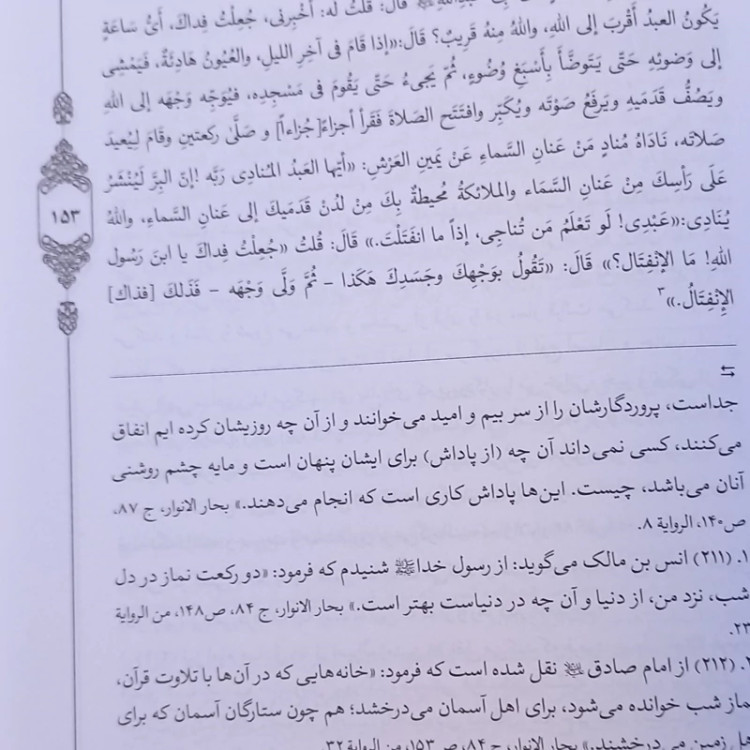 قالَ: قلتُ له: أخْبِرنی، جُعِلْتُ فِداكَ، أیُّ سَاعَةٍ
یَكُونُ العبدُ أقْرَبَ إلی اللهِ، واللهُ مِنهُ قَرِیبٌ؟ قَالَ:«إذا قَامَ فی آخِرِ اللیلِ، والعُیُونُ هَادِئَةٌ، فَیَمْشِی
إلی وَضوئِهِ حَتّی یَتَوضَّأَ بِأَسْبَغِ وُضُوءٍ، ثُمَّ یَجیءُ حَتّی یَقُومَ فی مَسْجدِهِ، فیُوَجِّه وَجْهَه إلی اللهِ
ویَصُفُّ قدَمَیهِ ویَرفَعُ صَوْتَه ویُكَبِّر وافتَتَح الصَلاةَ فَقَرأ أجزاءً[جُزاءاً] و صَلَّی ركعتینِ وقَامَ لِیُعیدَ
صَلاتَه، نَادَاهُ مُنادٍ مَنْ عَنانِ السَّماءِ عَنْ یَمینِ العَرْشِ: «أیُّها العَبدُ المُنادِی رَبَّه !إنّ البِرَّ لَیُنْشَرُ
عَلَی رَأسِكَ مِنْ عَنانِ السَّمَاء والملائكةُ مُحیطةٌ بِكَ مِنْ لَدُنْ قَدَمَیكَ إلی عَنانِ السَّماءِ، واللهُ
یُنَادِی:«عَبْدِی! لَو تَعْلَمُ مَن تُناجِی، إذاً ما انفَتَلْتَ.» قَالَ: قُلتُ «جُعِلْتُ فِداكَ یا ابنَ رَسُول
اللهِ! مَا الإنْفِتَال؟» قَالَ: «تَقُولُ بوَجْهِكَ وجَسَدِكَ هَكَذا - ثُمَّ وَلَّی وَجْهَه - فَذَلكَ [فذاك]
الإنْفِتَالُ.»۳
۱۵۳
جداست، پروردگارشان را از سر بیم و امید می‌خوانند و از آن چه روزیشان کرده ایم انفاق
می‌کنند، کسی نمی‌داند آن چه (از پاداش) برای ایشان پنهان است و مایه چشم روشنی
آنان می‌باشد، چیست. این‌ها پاداش کاری است که انجام می‌دهند.» بحار الانوار، ج ۸۷،
ص۱۴۰، الروایة ۸.
۱. (۲۱۱) انس بن مالک می‌گوید: از رسول خداﷺ شنیدم که فرمود: «دو رکعت نماز در دل
شب، نزد من، از دنیا و آن چه در دنیاست بهتر است.» بحار الانوار، ج ۸۴، ص۱۴۸، من الروایة
۲۳.
۲. (۲۱۲) از امام صادق نقل شده است که فرمود: «خانه‌هایی که در آن‌ها با تلاوت قرآن،
نماز شب خوانده می‌شود، برای اهل آسمان می‌درخشد؛ هم چون ستارگان آسمان که برای
اهل زمین می درخشند.» بحار الانوار، ج ۸۴، ص ۱۵۳، من الروایة ۳۲.